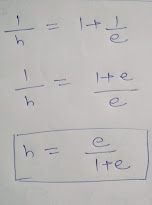 1/h = 1 + 1/e
1/h = 1+e/e
h = e/1+e